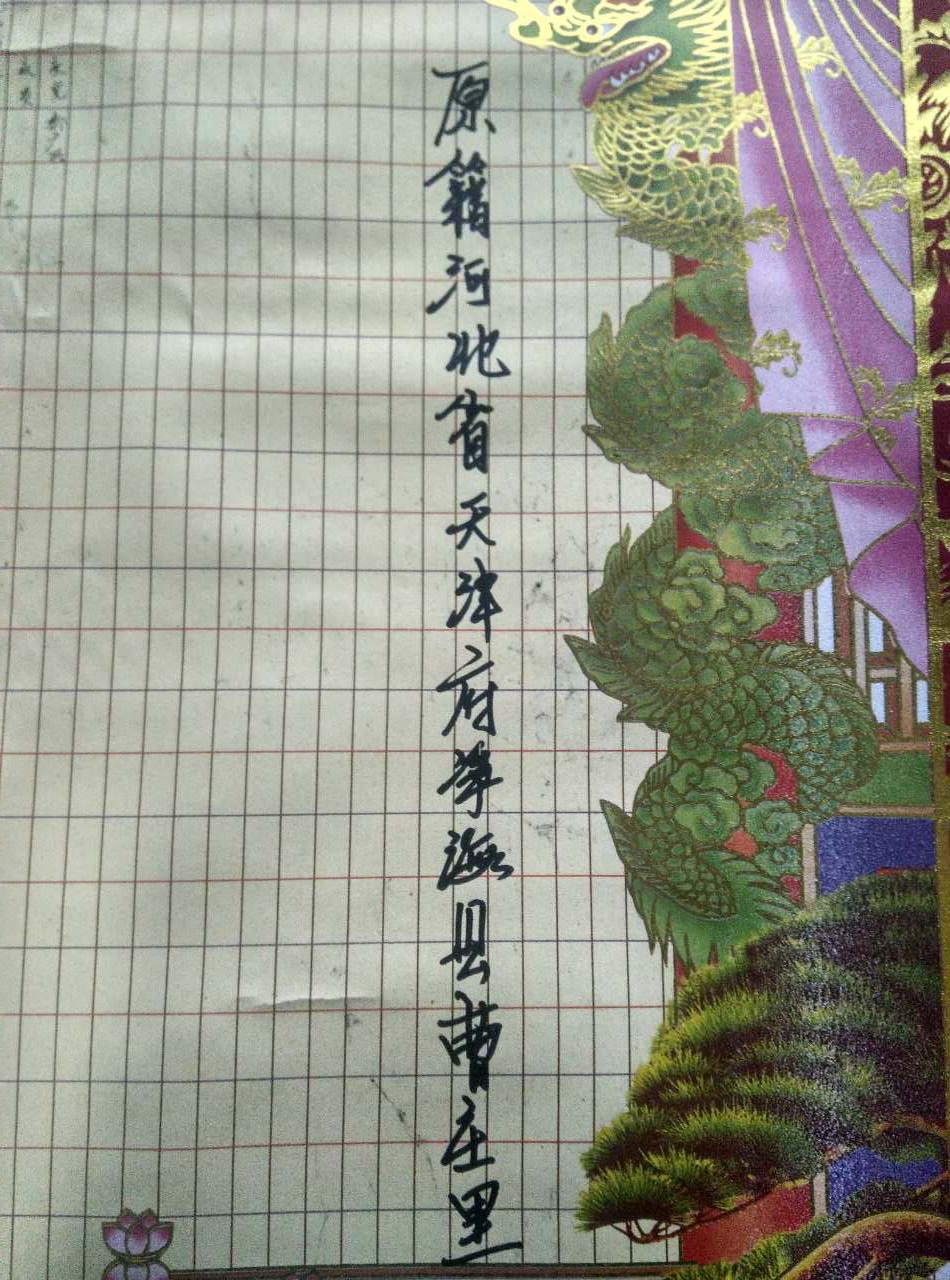 原籍河北省天津府靜海县曹庄里